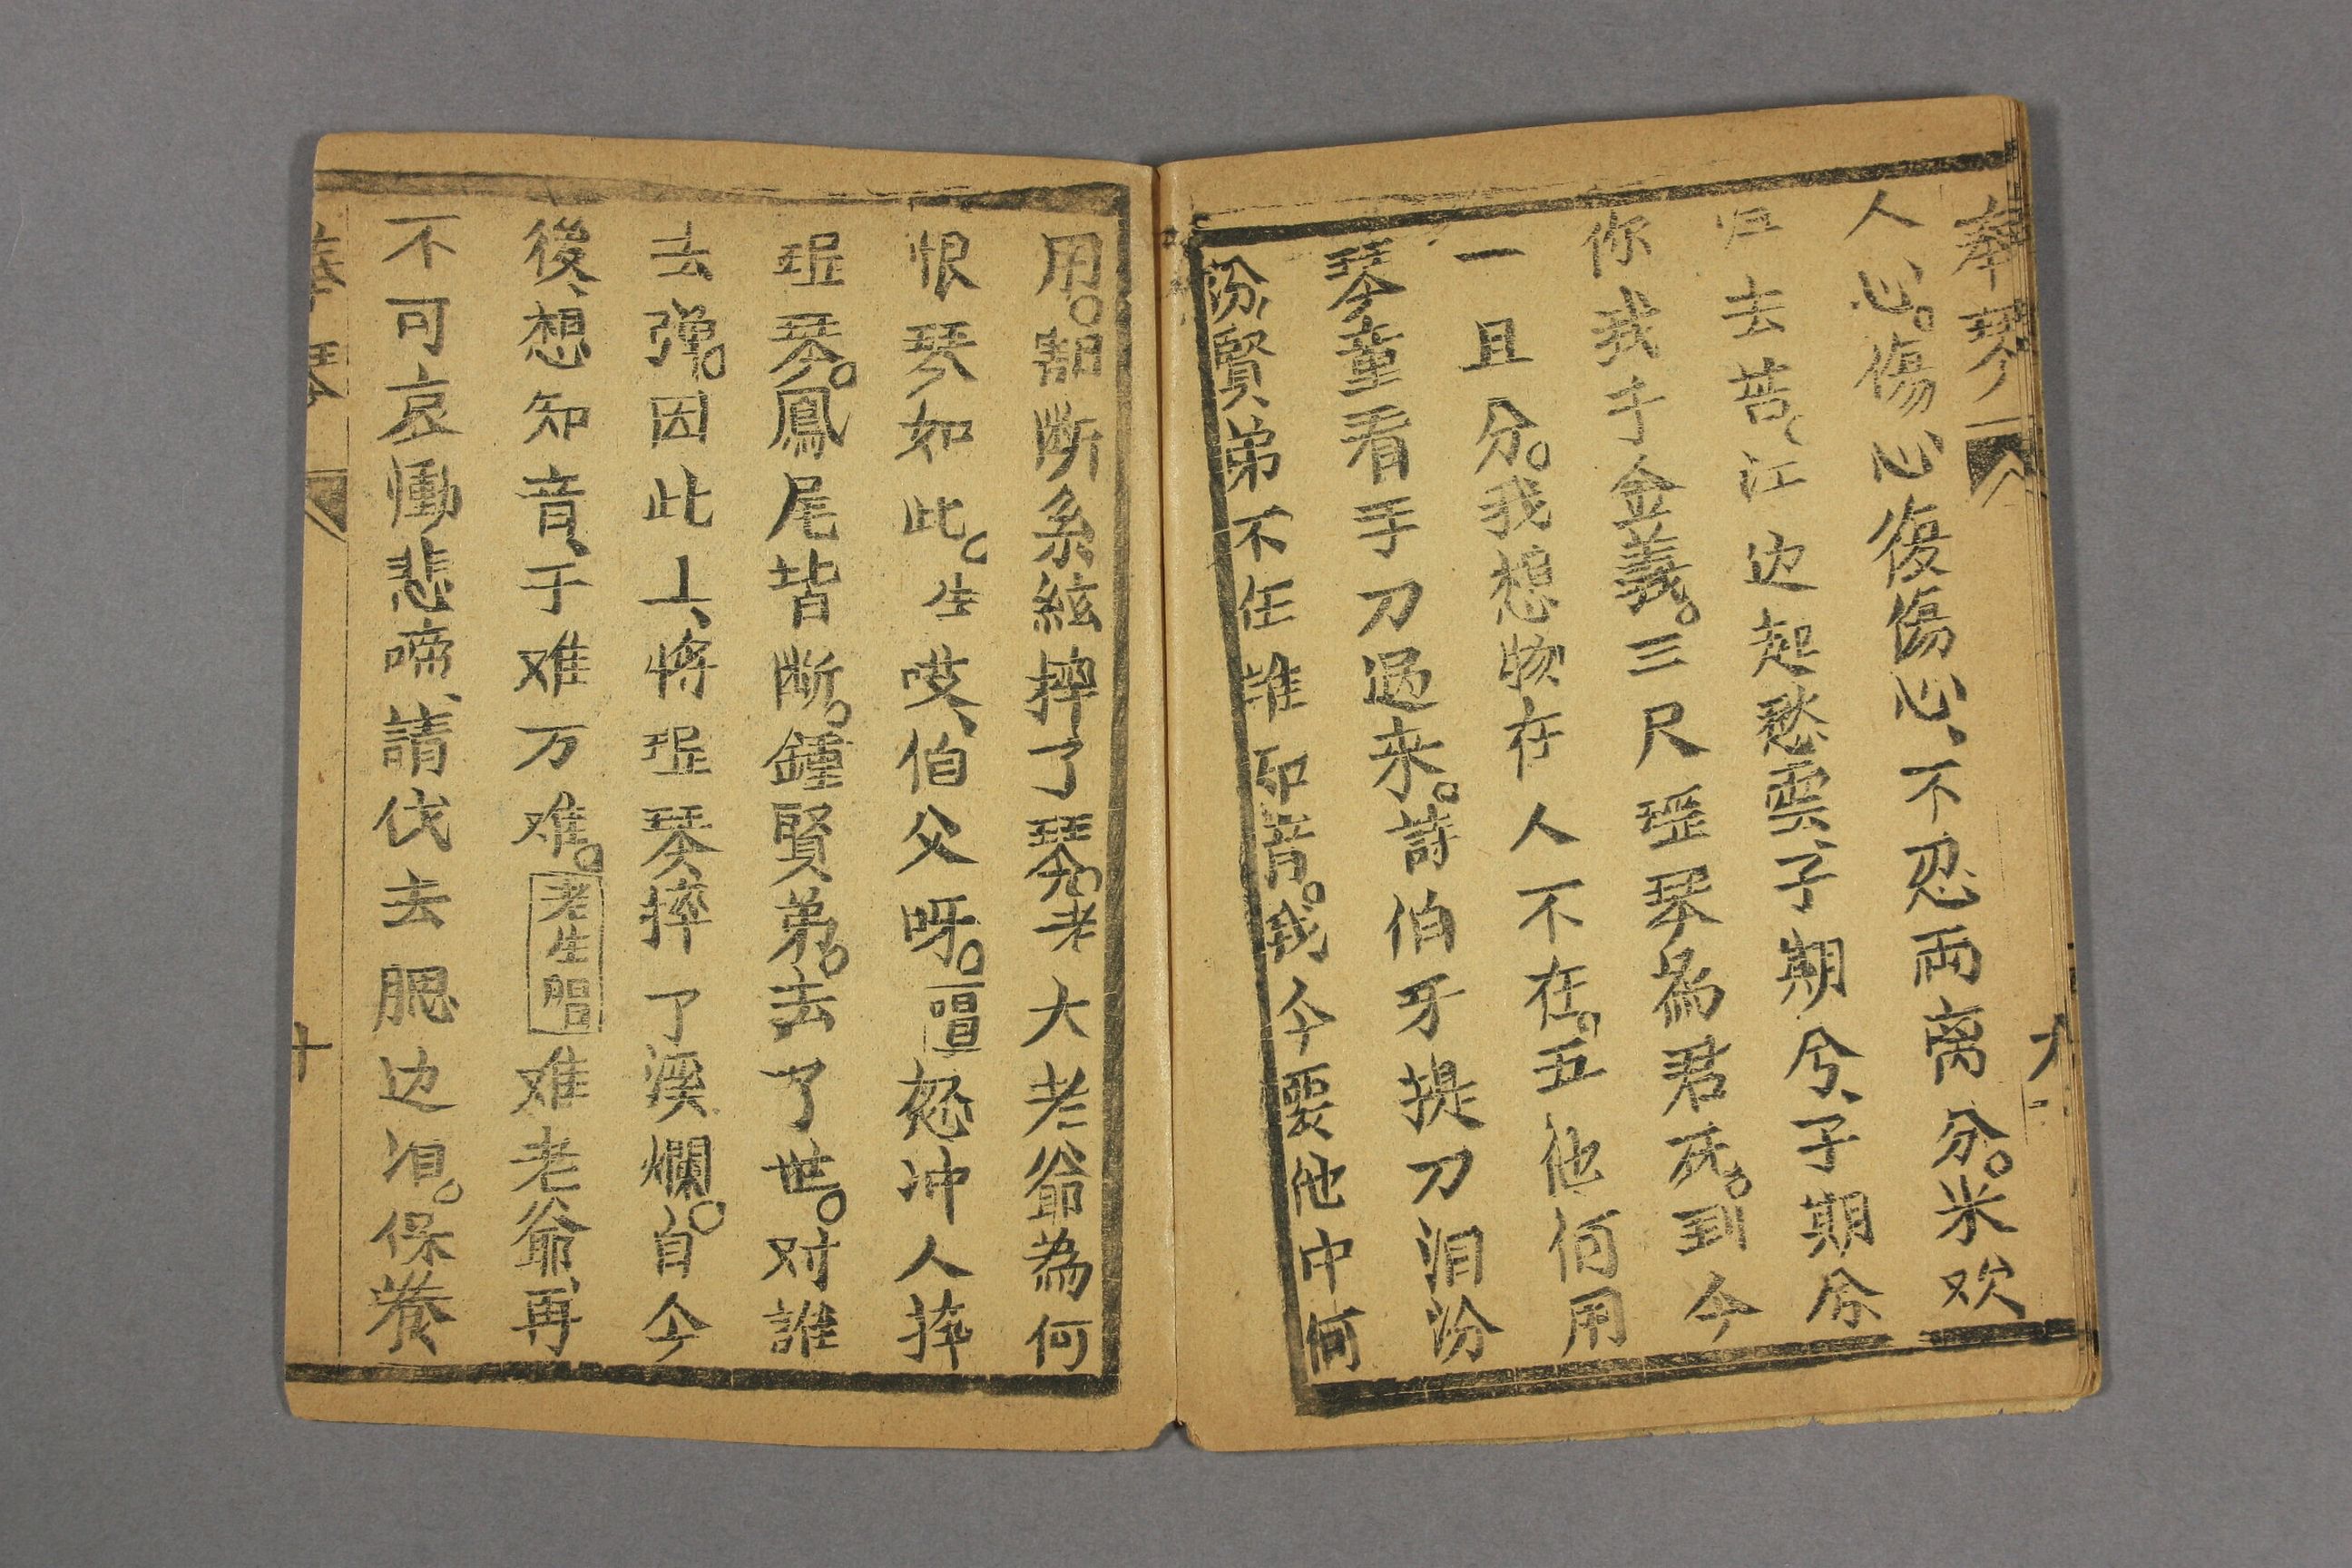 奉琴
九
人心。傷心復傷心、不忍両离分。米欢
归去苦、江边起愁雲、子期兮、子期兮
你我千金義。三尺瑶琴為君死。到今
一旦分。我想物在人不在。五他何用
琴童看手刀过来。詩伯牙提刀泪汾
汾賢弟不在誰知音。我今要他中何
用。割断糸絃摔了琴。老大老爺為何
恨琴如此。生哎、伯父呀。唱怒冲人摔
琘琴。鳳尾皆断。鍾賢弟。去了世。对誰
去弹。因此上、将琘琴摔了溪爛。自今
後、想知音、千难万难。老生唱难老爺、再
不可哀慟悲啼、請伐去腮边泪。保養
琴
十